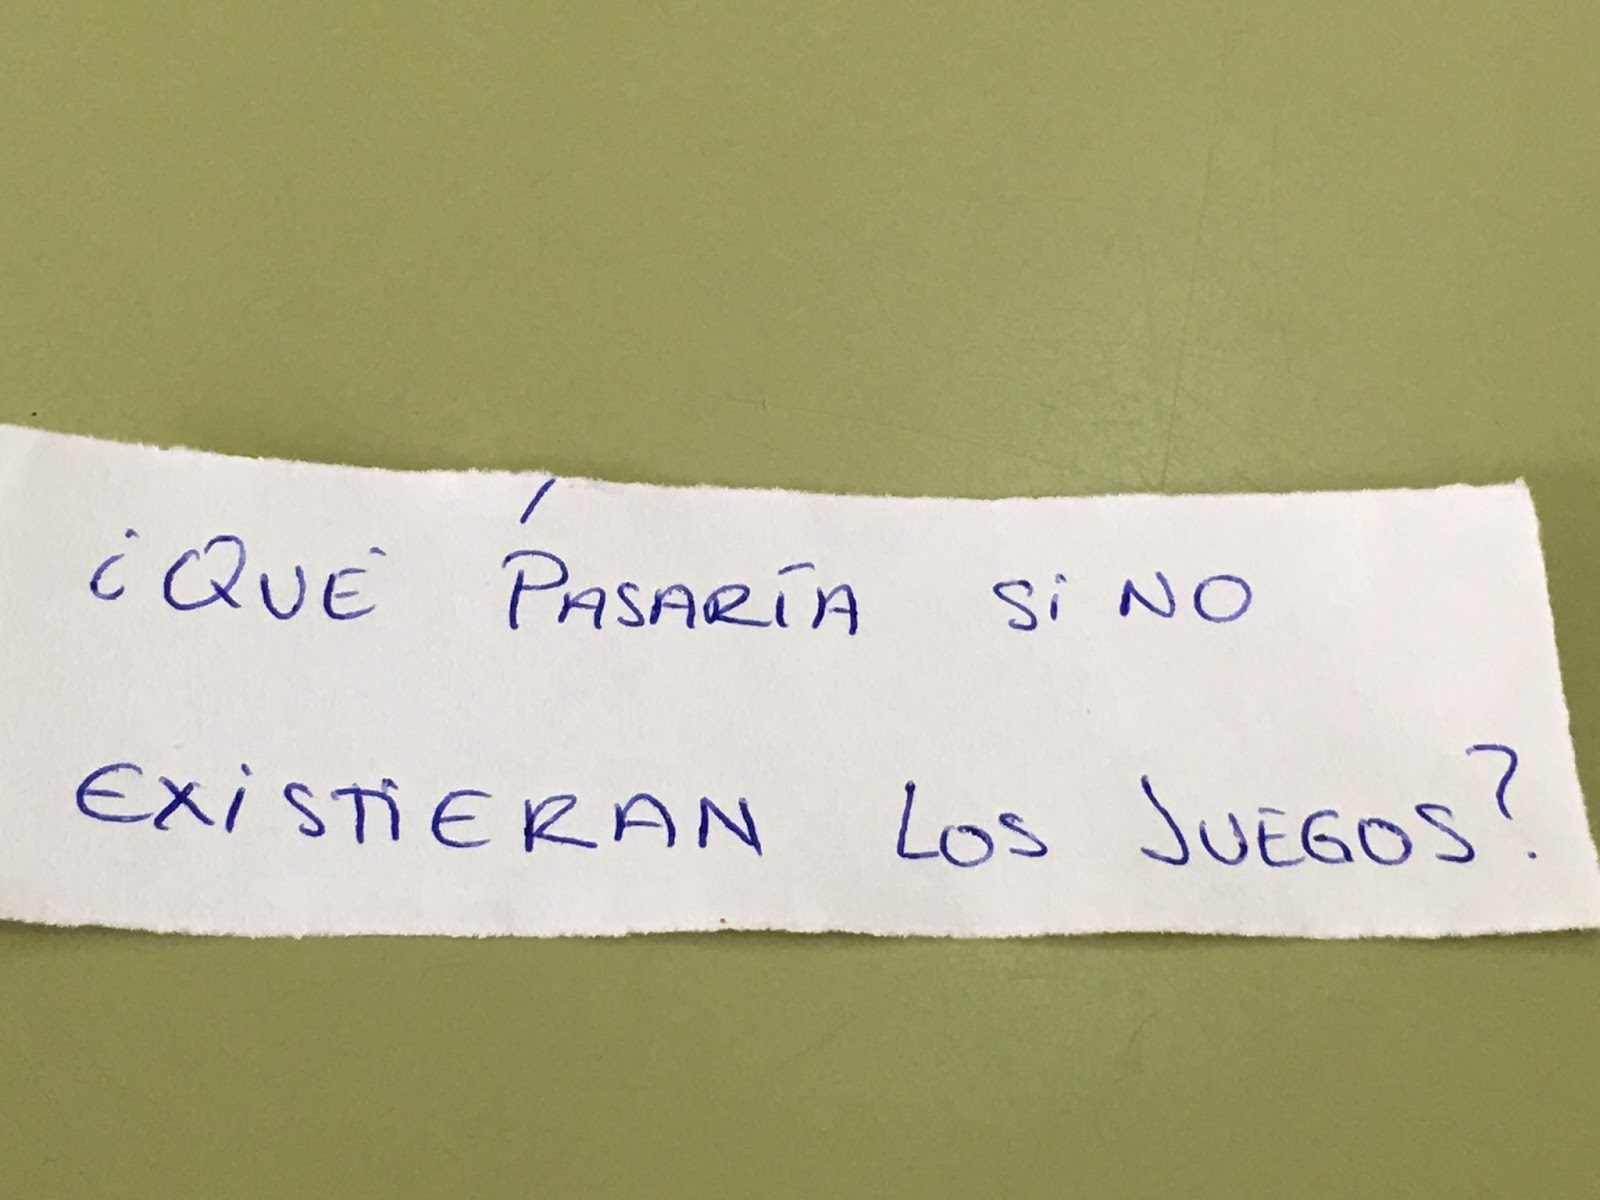 ¿QUÉ PASARÍA SI NO
EXISTIERAN LOS JUEGOS?